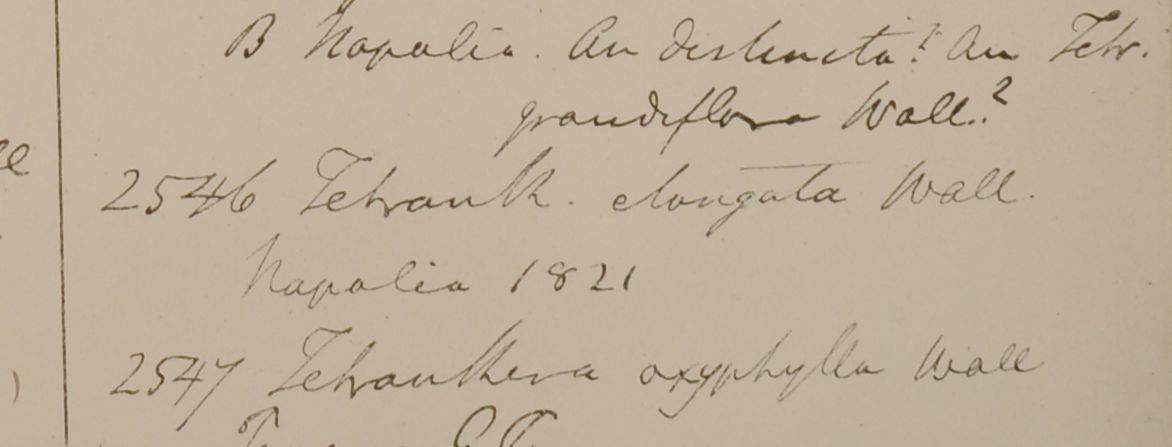 B Napalia. An distincta? An Tetr.
grandiflora Wall.?
2546 Tetranth. elongata Wall.
Napalia 1821
2547 Tetranthera oxyphylla Wall